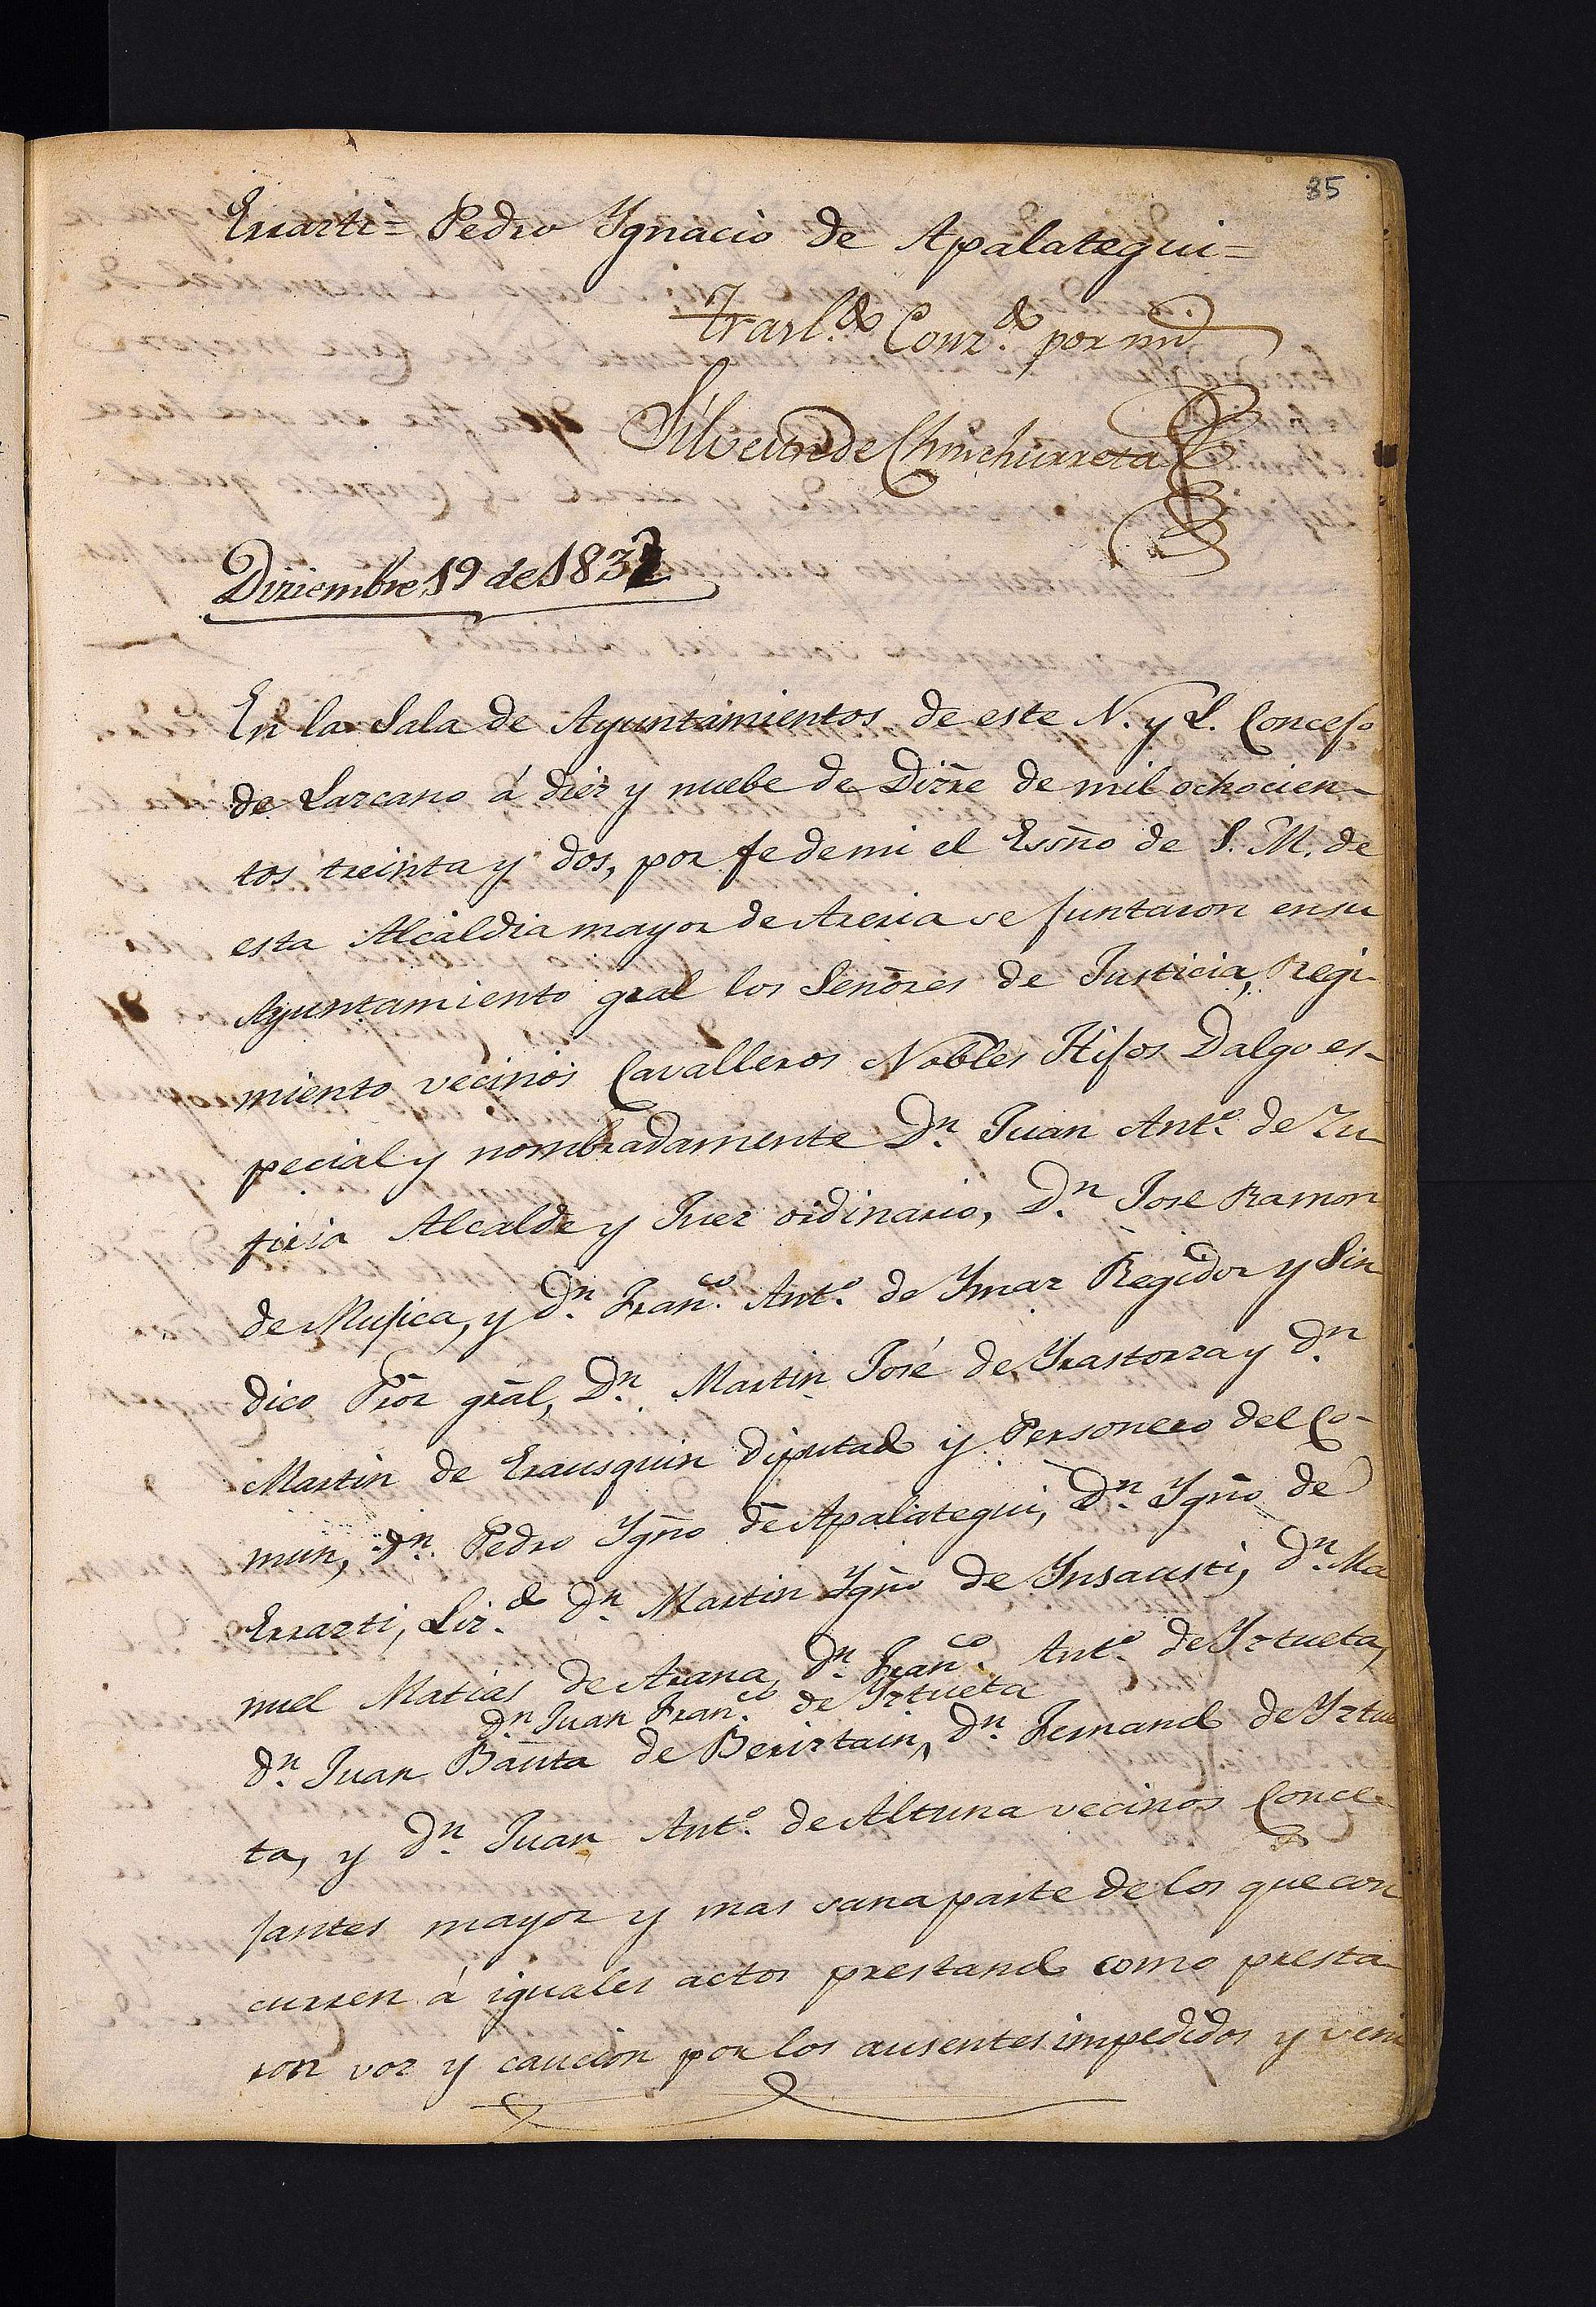 85
Errarti = Pedro Ygnacio de Apalategui =
Trasl.do Conz.do por mi
Silvestre de Chinchurreta
Diziembre 19 de 1832
En la Sala de Ayuntamientos de este N. y L. Concejo
de Lazcano á diez y nuebe de Dizre de mil ochocien-
tos treinta y dos, por fe de mi el Essño de S. M. de
esta Alcaldia mayor de Areria se juntaron en su
Ayuntamiento gral los Señores de Justicia, Regi-
miento vecinos Cavalleros Nobles Hijos Dalgo es-
pecial y nombradamente Dn. Juan Anto. de Zu-
firia Alcalde y Juez ordinario, Dn. Jose Ramon
de Mujica, y Dn. Franco. Anto. de Ymaz Regidor y Sin
dico Pror gral, Dn. Martin José de Yrastorza y Dn
Martin de Erausquin Diputado y Personero del Co-
mun, Dn. Pedro Ygño de Apalategui, Dn. Ygño de
Errarti, Liz.do Dn Martin Ygño de Ynsausti, Dn. Ma
nuel Matias de Arana, Dn. Franco. Anto. de Yztueta,
Dn Juan Franco. de Yztueta
Dn. Juan Bauta de Beriztain, Dn. Fernando de Yztue
ta, y Dn. Juan Anto. de Altuna vecinos Conce-
jantes mayor y mas sana parte de los que con
curren á iguales actos prestando como presta
ron voz y caucion por los ausentes impedidos y veni